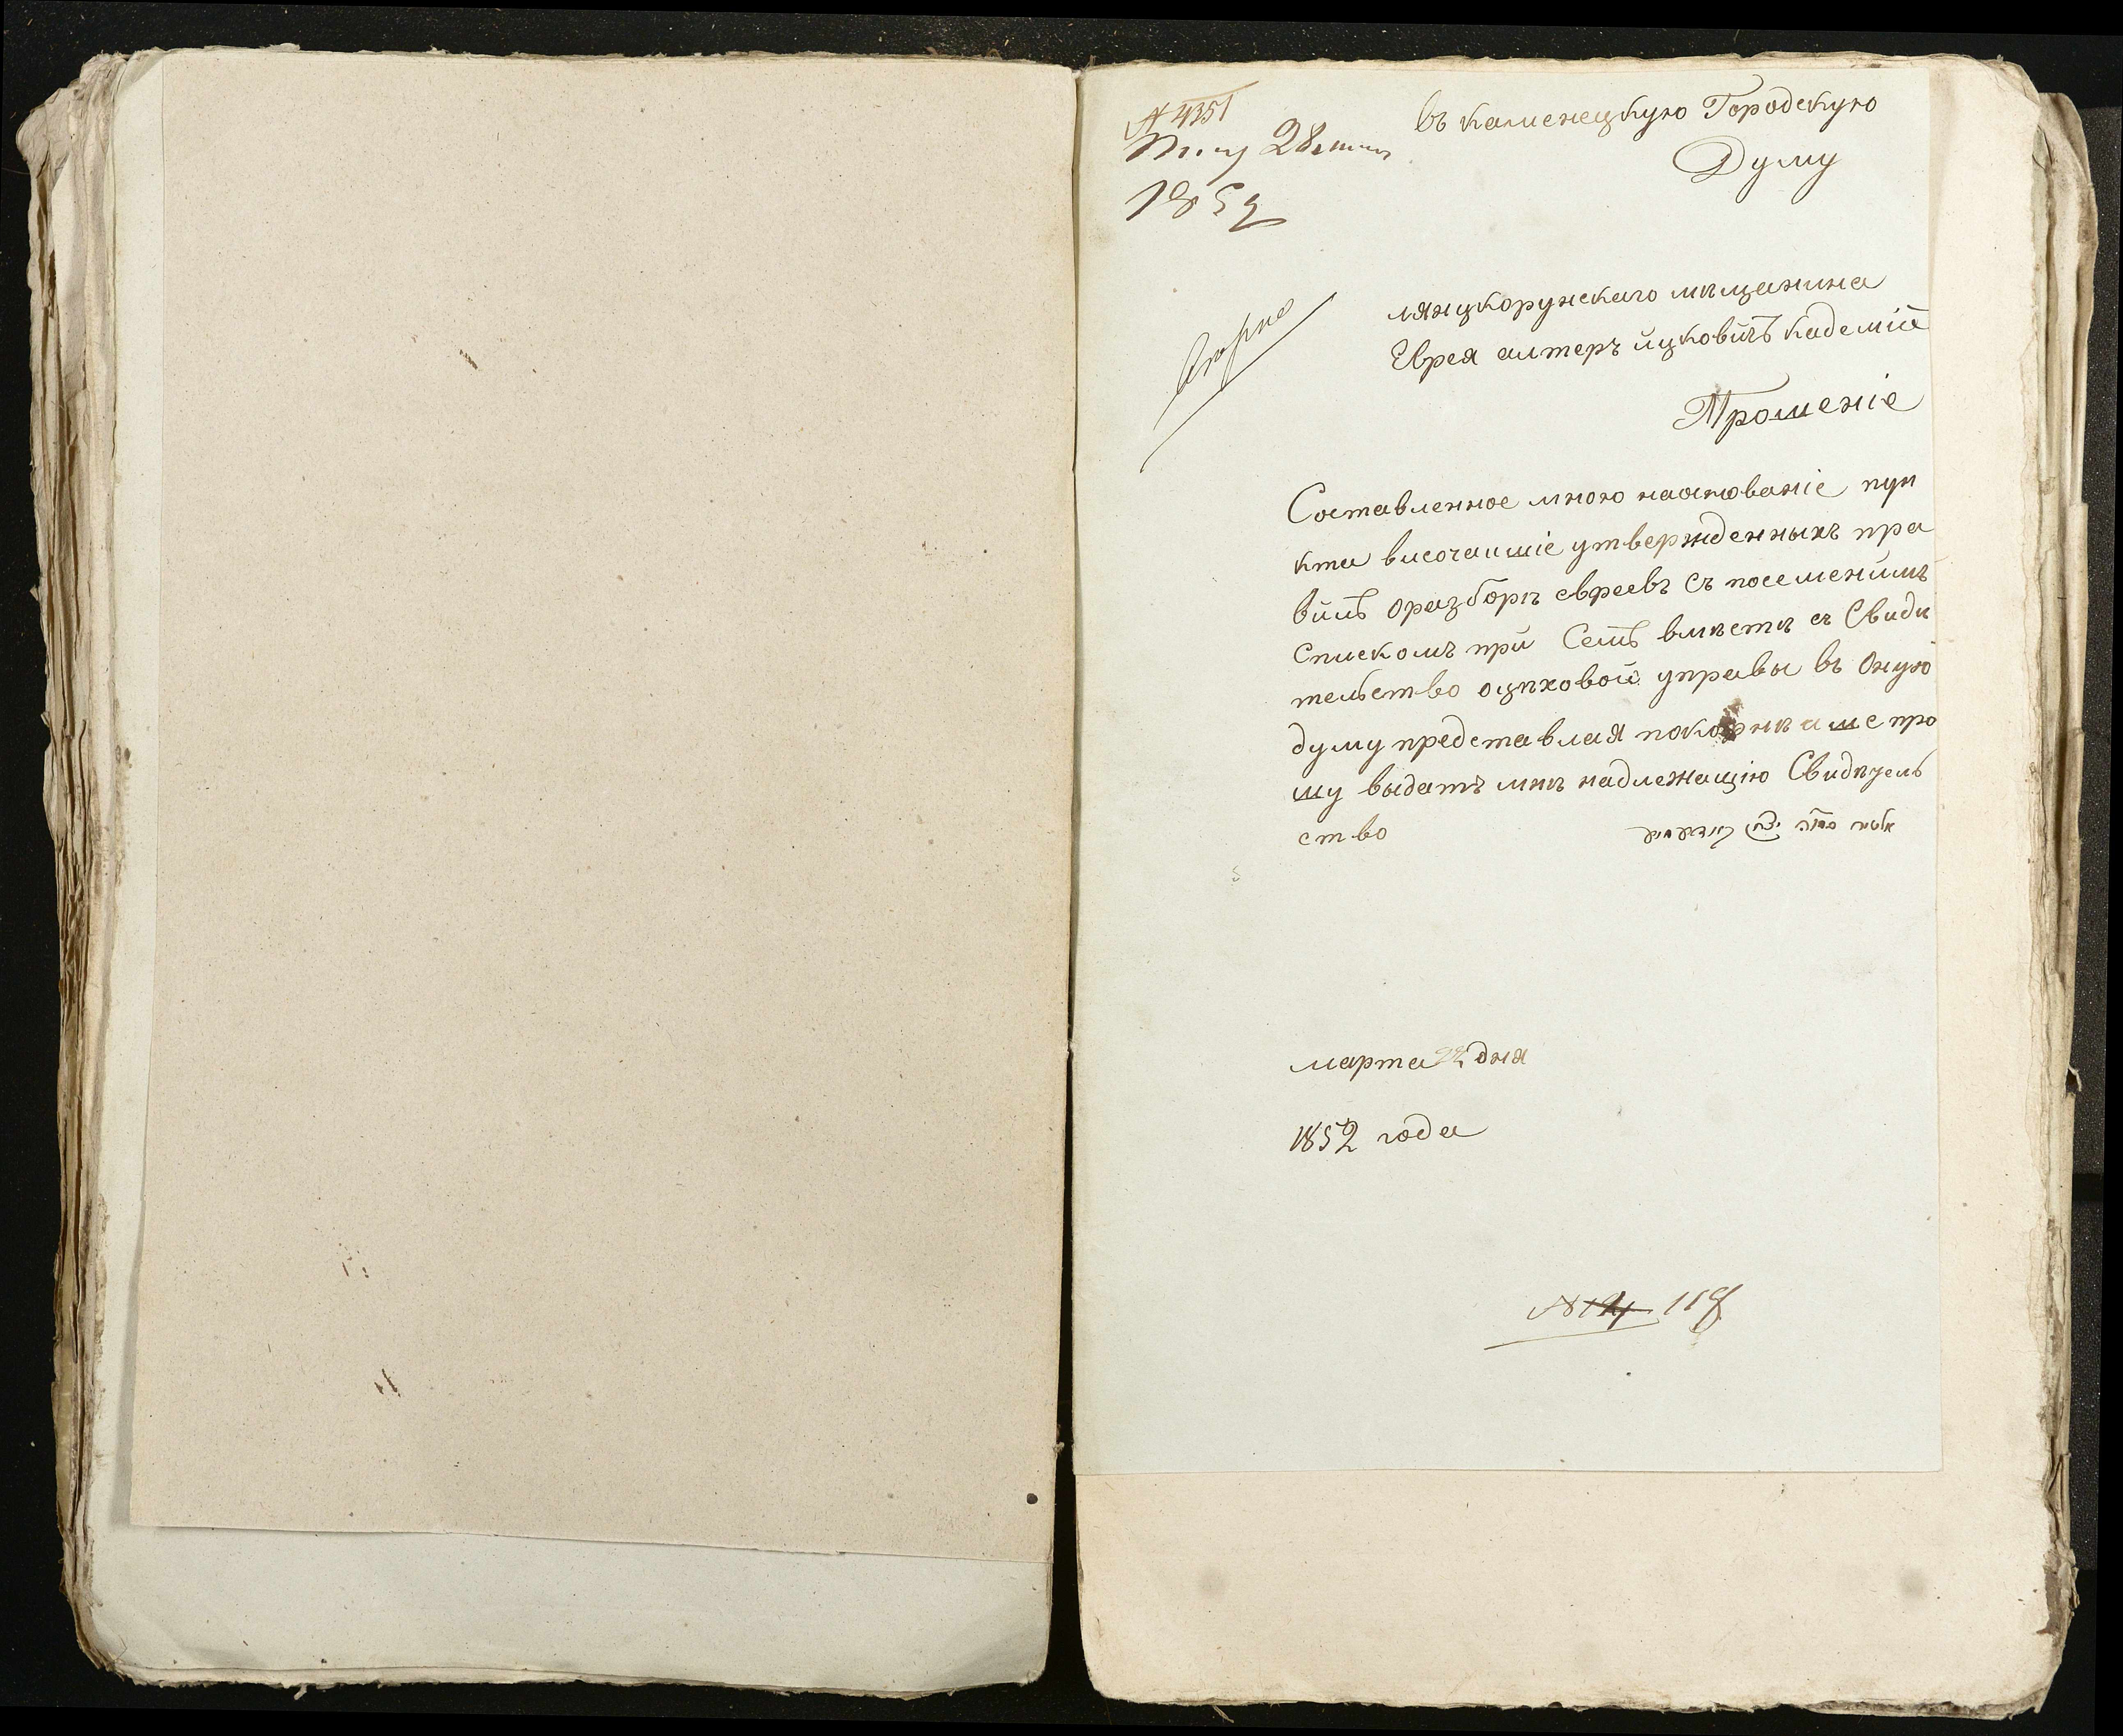 № 4351
28
1852
въ каменецкую Городскую
Думу
лянцкорунскаго мѣщанина
Еврея алтеръ ицковичъ кадемiй
Прошенiе
Составленное мною наоснованiе пун
кта височаишiе утвержденныхъ пра
вилъ оразборѣ евреевъ съ посемеинимъ
спискомъ при семъ вмѣстѣ съ Свидѣ
тельство оцѣховой управы въ Оную
думу представлая покорнѣише про
шу выдатъ мнѣ надлежащiю Свидѣтель
ство
марта 22 дня
1852 года
№ 14 118